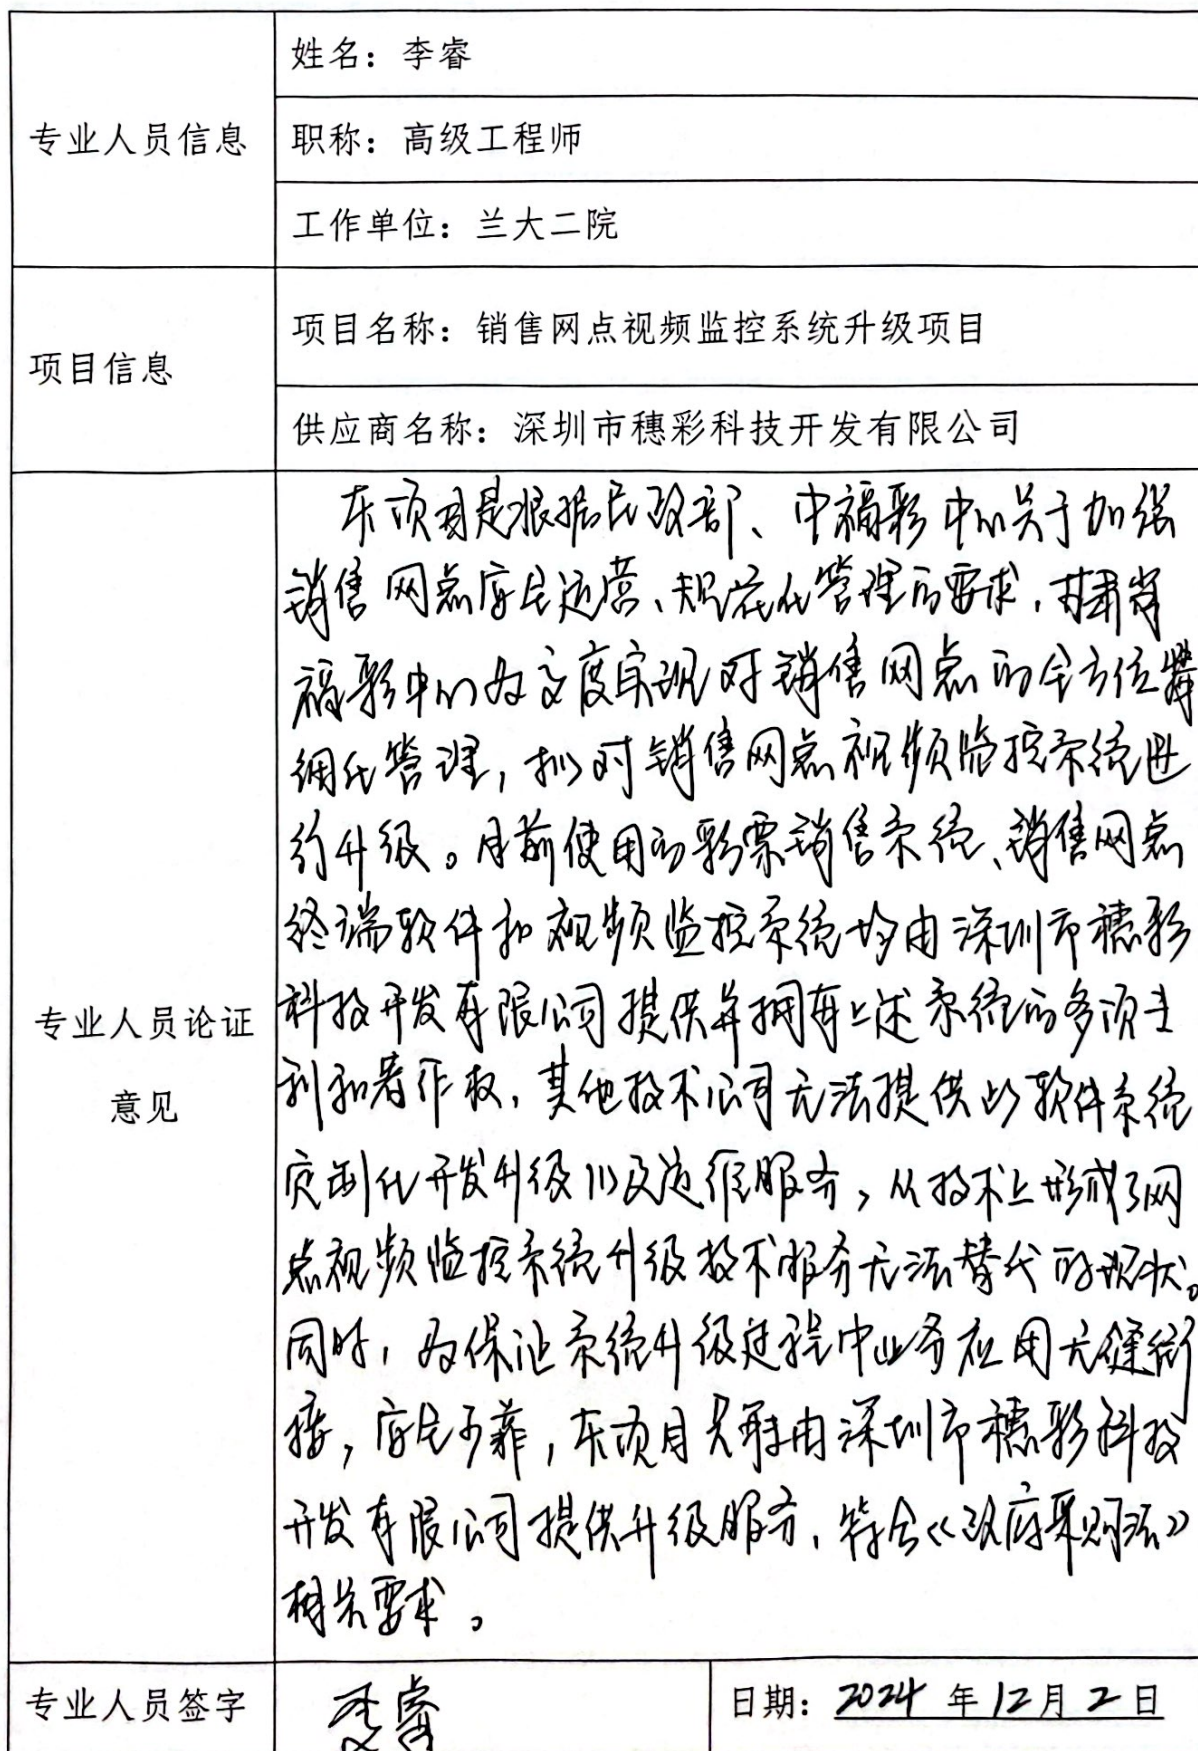 姓名：李睿
专业人员信息
职称：高级工程师
工作单位：兰大二院
项目信息
项目名称：销售网点视频监控系统升级项目
供应商名称：深圳市穗彩科技开发有限公司
专业人员论证
意见
本项目是根据民政部、中福彩中心关于加强
销售网点安全运营、规范化管理的要求，甘肃省
福彩中心为实现对销售网点的全方位精
细化管理，拟对销售网点视频监控系统进
行升级。目前使用的彩票销售系统、销售网点
终端软件和视频监控系统均由深圳市穗彩
科技开发有限公司提供并拥有上述系统的多项专
利和著作权，其他技术公司无法提供此软件系统
定制化开发升级以及运维服务，从技术上形成了网
点视频监控系统升级技术服务无法替代的现状。
同时，为保证系统升级过程中业务应用无缝衔
接，安全可靠，本项目只能由深圳市穗彩科技
开发有限公司提供升级服务，符合《政府采购法》
相关要求。
专业人员签字
李睿
日期：2024 年 12 月 2 日